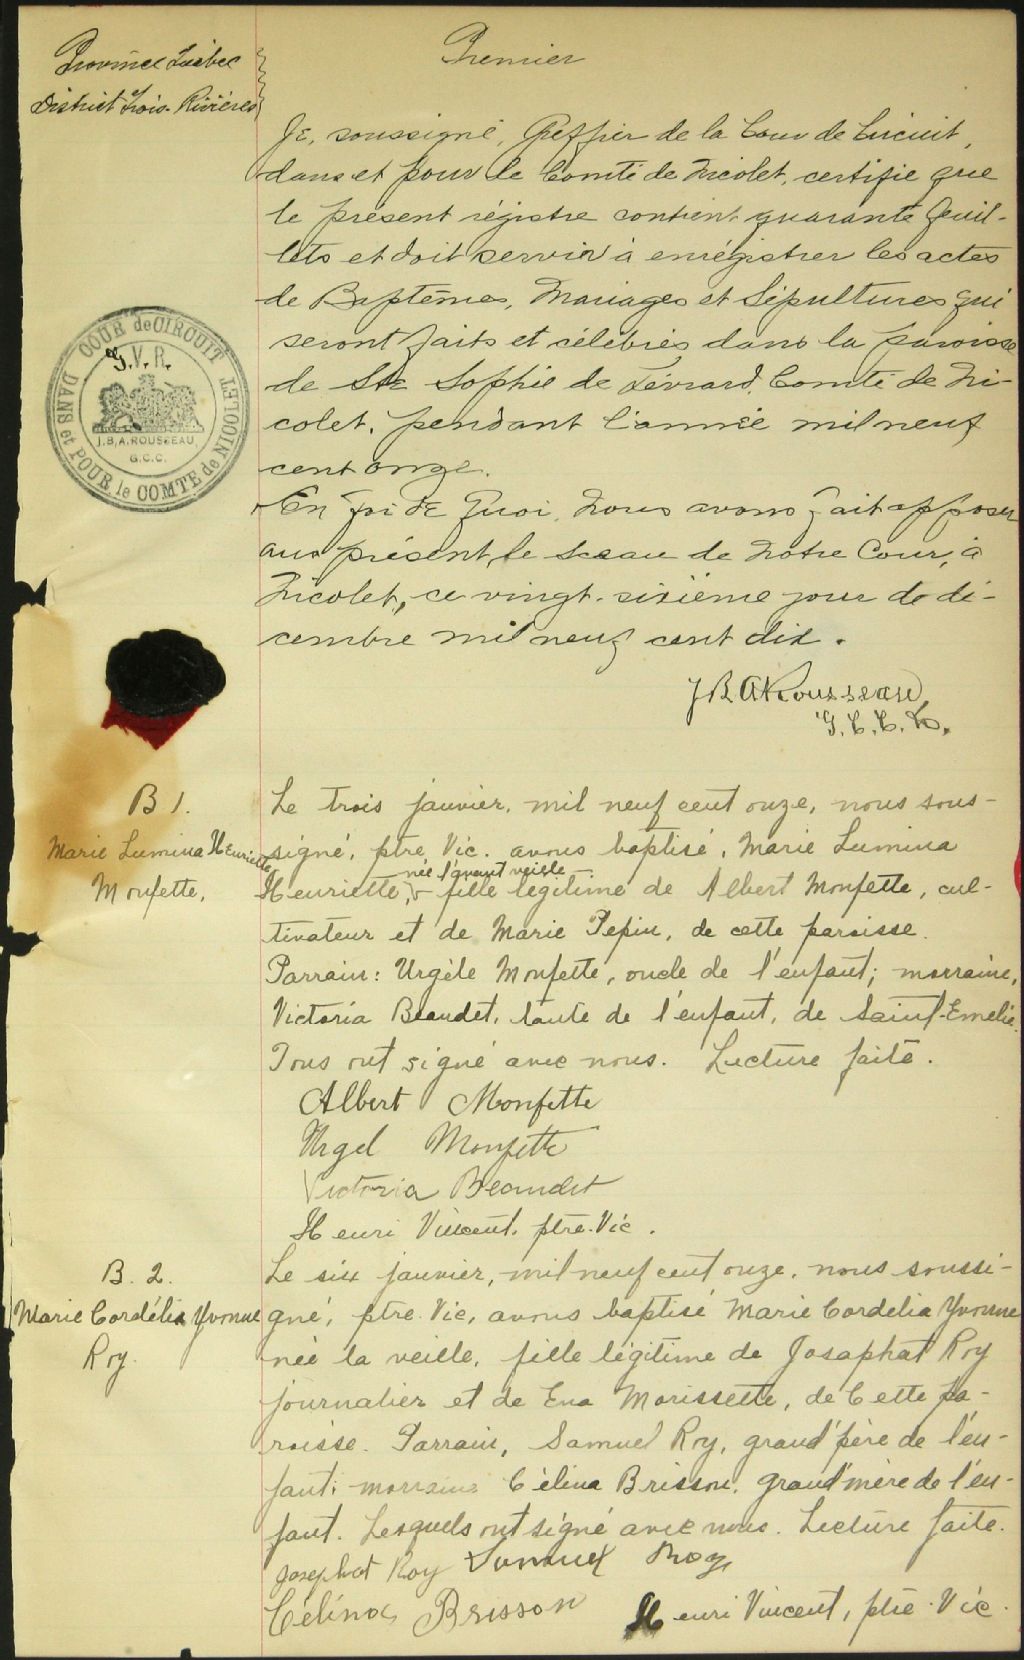 Province Québec
District of Trois-Rivières
Premier
Je, soussigné, Greffier de la Cour de Circuit,
dans et pour le Comté de Nicolet, certifie que
le présent régistre contient quarante feuil-
lets et doit servir à enrégistrer les actes
de Baptêmes, Mariages et Sépultures qui
seront faits et célébrés dans la paroisse
de Ste Sophie de Lévrard, Comté de Ni-
colet, pendant l'année mil neuf
cent onze.
En foi de quoi, nous avons fait apposer
aux présent, le sceau de Notre Cour, à
Nicolet, ce vingt-sixième jour de dé-
cembre mil neuf cent dix.
J B A Rousseau,
G. C. C.
COUR de CIRCUIT
DANS et POUR le COMTE de NICOLET
V. R.
J.B.A. ROUSSEAU,
G.C.C.
B 1.
Marie Lumina Henriette
Monfette,
Le trois janvier, mil neuf cent onze, nous sous-
signé, ptre Vic. avons baptisé, Marie Lumina
née l'avant veille
Henriette, fille légitime de Albert Monfette, cul-
tivateur et de Marie Pepin, de cette paroisse.
Parrain: Urgèle Monfette, oncle de l'enfant; marraine,
Victoria Beaudet, tante de l'enfant, de Saint-Emélie.
Tous ont signé avec nous. Lecture faite.
Albert Monfette
Urgel Monfette
Victoria Beaudet
Henri Vincent, ptre. Vic.
B. 2.
Marie Cordélia Yvonne
Roy.
Le six janvier, mil neuf cent onze, nous soussi-
gné, ptre Vic, avons baptisé Marie Cordelia Yvonne
née la veille, fille légitime de Josaphat Roy
journalier et de Eva Morissette, de Cette pa-
roisse. Parrain, Samuel Roy, grand'père de l'en-
fant; marraine Célina Brisson, grand'mère de l'en-
fant. Lesquels ont signé avec nous. Lecture faite.
Josephat Roy Samuel Roy
Célina Brisson Henri Vincent, ptre. Vic.